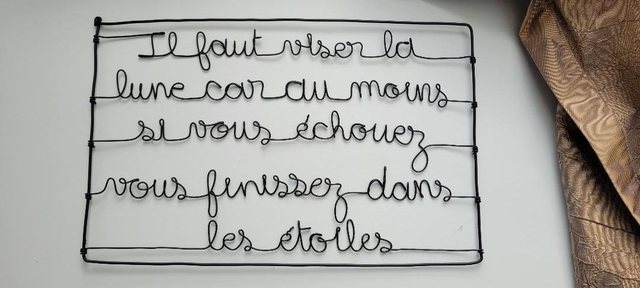 Il faut viser la
lune car au moins
si vous échouez
vous finissez dans
les étoiles